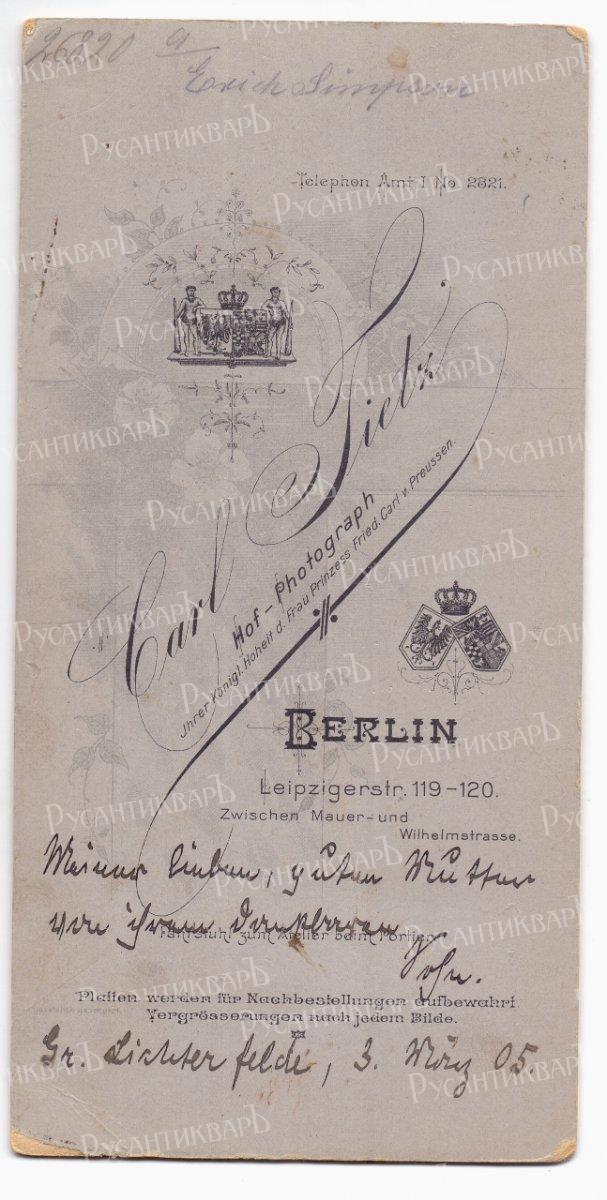 26820 a
Erich
Telephon Amt I No 2821.
Carl Tietz
Hof-Photograph
Ihrer Königl. Hoheit d. Frau Prinzess Fried. Carl v. Preussen.
BERLIN
Leipzigerstr. 119-120.
Zwischen Mauer- und
Wilhelmstrasse.
Meiner lieben, guten Mutter
von ihrem dankbaren
Fahrstuhl zum Atelier beim Portier.
Sohn.
Platten werden für Nachbestellungen aufbewahrt.
Vergrösserungen nach jedem Bilde.
Gr. Lichterfelde, 3. März 05.
РусАнтикваръ